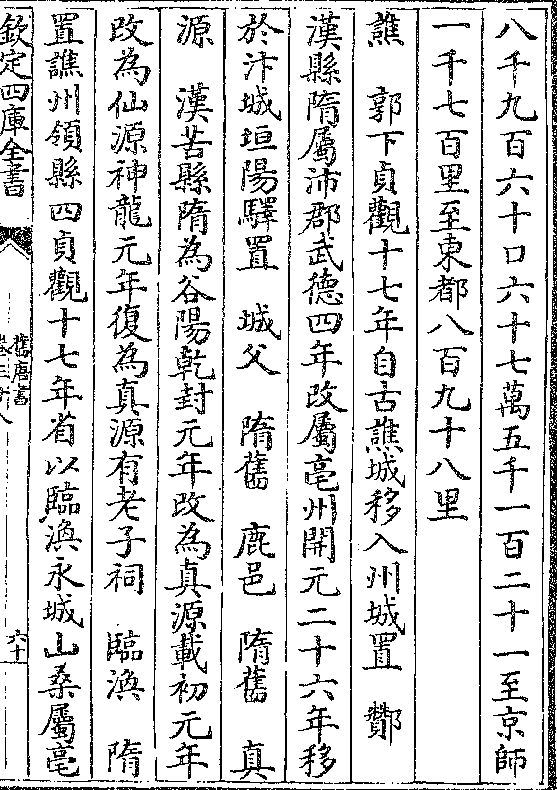 八千九百六十口六十七萬五千一百二十一至京師
一千七百里至東都八百九十八里
譙　郭下貞觀十七年自古譙城移入州城置　酇
漢縣隋屬沛郡武德四年改屬亳州開元二十六年移
於汴城垣陽驛置　城父　隋舊　鹿邑　隋舊　真
源　漢苦縣隋為谷陽乾封元年改為真源載初元年
改為仙源神龍元年復為真源有老子祠　臨渙　隋
置譙州領縣四貞觀十七年省以臨渙永城山桑屬亳
欽定四庫全書
舊唐書
卷三十八
六十